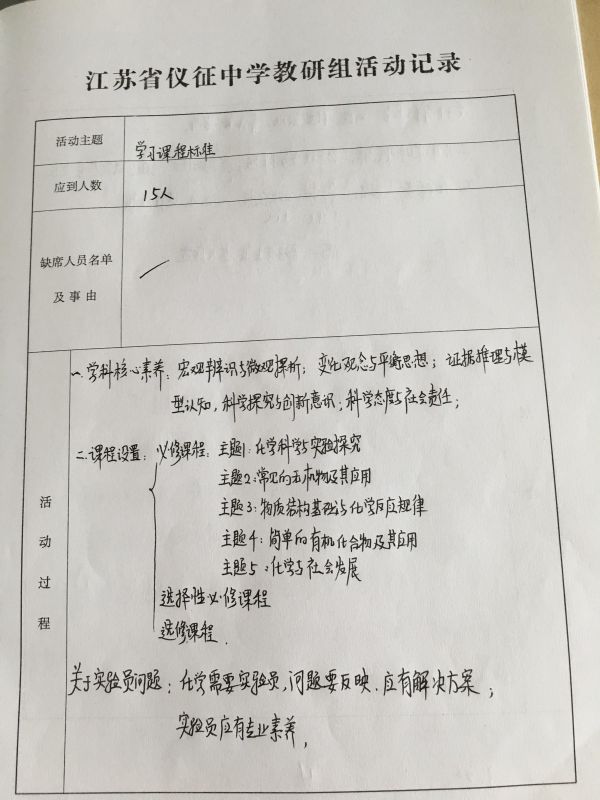 江苏省仪征中学教研组活动记录
活动主题 学习课程标准
应到人数 15人
缺席人员名单
及事由
活动过程
一. 学科核心素养: 宏观辨识与微观探析; 变化观念与平衡思想; 证据推理与模
型认知, 科学探究与创新意识; 科学态度与社会责任;
二. 课程设置: 必修课程: 主题1: 化学科学与实验探究
主题2: 常见的无机物及其应用
主题3: 物质结构基础与化学反应规律
主题4: 简单的有机化合物及其应用
主题5: 化学与社会发展
选择性必修课程
选修课程.
关于实验员问题: 化学需要实验员, 问题要反映. 应有解决方案;
实验员应有专业素养,